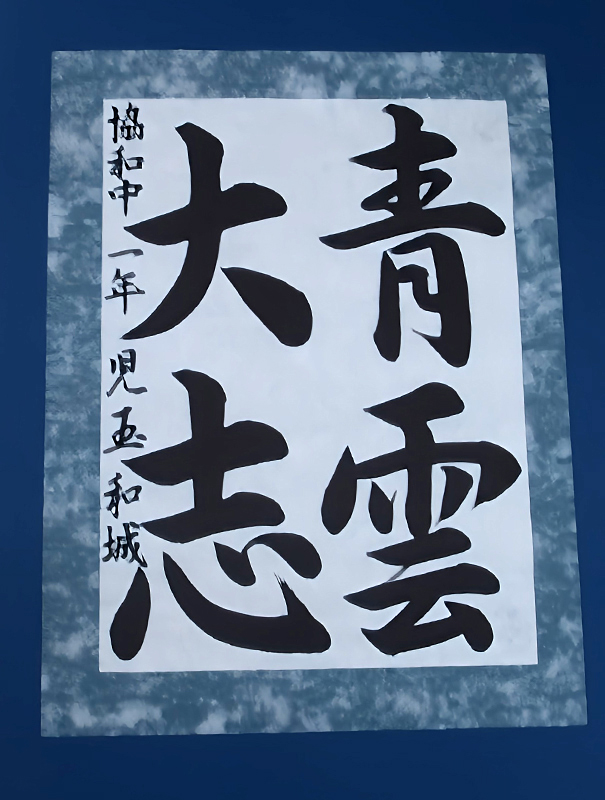 青雲
大志
協和中 一年 児玉 和城